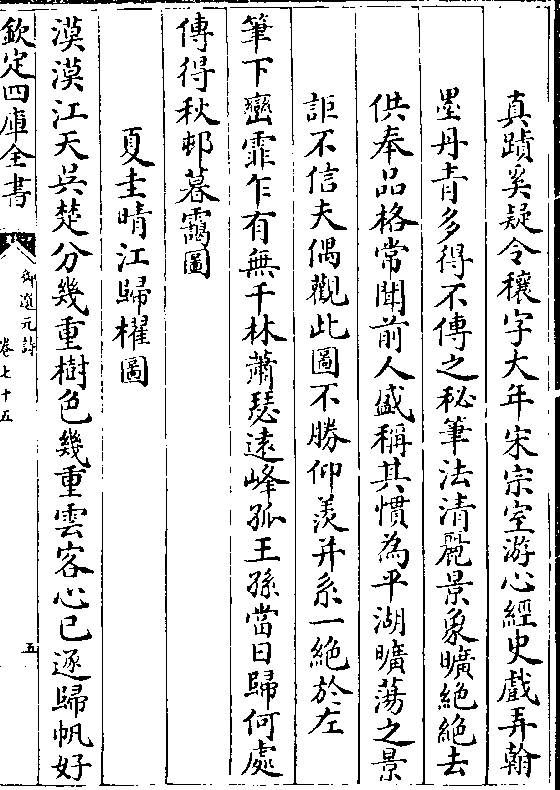 真蹟奚疑令穰字大年宋宗室游心經史戲弄翰
墨丹青多得不傳之秘筆法清麗景象曠絶絶去
供奉品格常聞前人盛稱其慣為平湖曠蕩之景
詎不信夫偶觀此圖不勝仰羨并系一絶於左
筆下巒霏乍有無千林蕭瑟遠峰孤王孫當日歸何處
傳得秋邨暮靄圖
夏圭晴江歸櫂圖
漠漠江天吳楚分幾重樹色幾重雲客心已逐歸帆好
欽定四庫全書
御選元詩
卷七十五
五